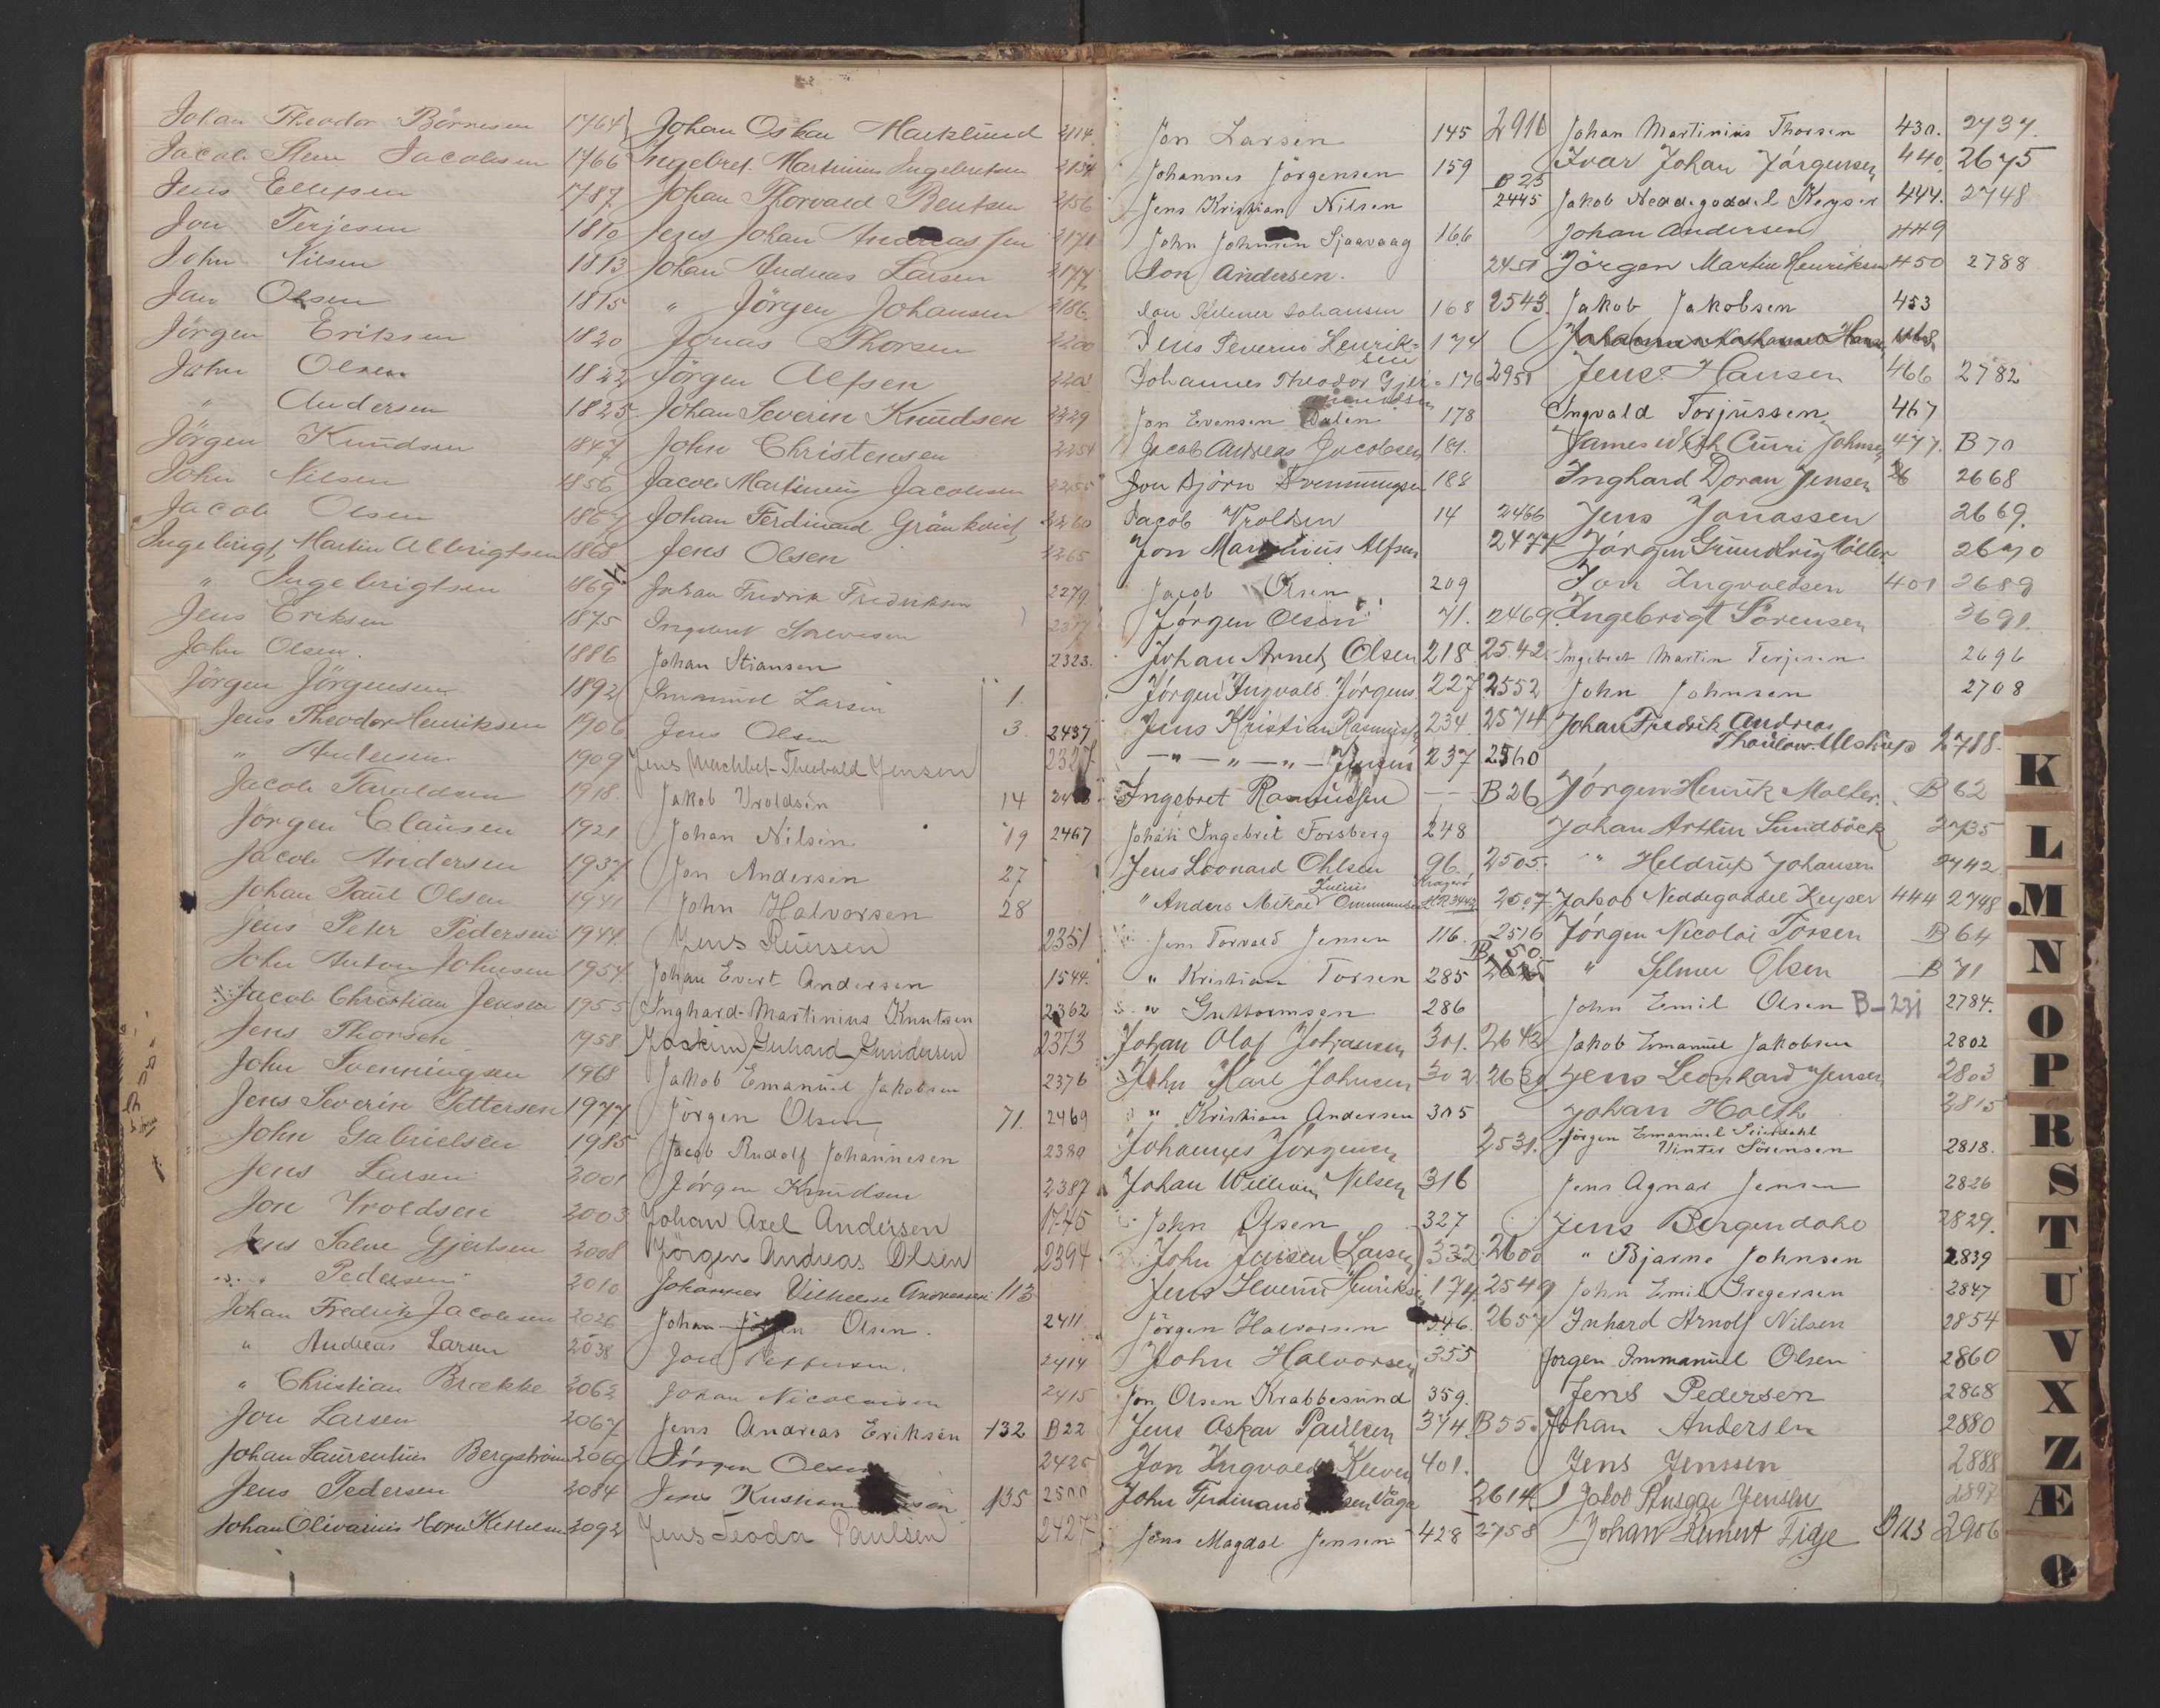 Johan Theodor Börresen 1764
Jacob Stern Jacobsen 1766
Jens Ellefsen 1787
Jon Terjesen 1810
John Nilsen 1813
Jan Olsen 1815
Jörgen Eriksen 1820
John Olsen 1822
" Andersen 1825
Jörgen Knudsen 1847
John Nilsen 1856
Jacob Olsen 1867
Ingebrigt Martin Albrigtsen 1868
" Ingebrigtsen 1869
Jens Eriksen 1875
John Olsen. 1886
Jörgen Jörgensen 1892
Jens Theodor Henriksen 1906
" Andersen 1909
Jacob Taraldsen 1918
Jörgen Clausen 1921
Jacob Andersen 1937
Johan Paul Olsen 1941
Jens Peter Pedersen 1944
John Anton Johnsen 1954
Jacob Christian Jensen 1955
Jens Thorsen 1958
John Svenningsen 1968
Jens Severin Pettersen 1977
John Gabrielsen 1985
Jens Larsen 2001
Jon Wroldsen 2003
Jens Salve Gjertsen 2008
" Pedersen 2010
Johan Fredrik Jacobsen 2026
" Andreas Larsen 2038
" Christian Brække 2062
Jon Larsen 2067
Johan Laurentius Bergström 2069
Jens Pedersen 2084
Johan Olivarius Horn Kittelsen 2092
Johan Oskar Marklund 2114
Ingebret Martinius Ingebretsen 2154
Johan Thorvald Bentsen 2156
Jens Johan Andreassen 2171
Johan Andreas Larsen 2177
" Jörgen Johansen 2186
Jonas Thorsen 2200
Jörgen Alfsen
Johan Severin Knudsen 2229
John Christensen 2254
Jacob Martinius Jacobsen 2255
Johan Ferdinand Gränkvist 2260
Jens Olsen 2265
Johan Fredrik Fredriksen 2279
Ingebret
Johan Stiansen 2323.
Immanuel Larsen 1.
Jens Olsen 3. 2437
Jens Theobald Jensen 2327
Jakob Vroldsen 14
Johan Nilsen 19 2467
Jon Andersen 27
John Halvorsen 28
Jens Reiersen 2351
Johan Evert Andersen 1544.
Inghard Martinius Knutsen 2362
Joakim Gerhard Gundersen 2373
Jakob Emanuel Jakobsen 2376
Jörgen Olsen 71. 2469
Jacob Rudolf Johannesen 2380
Jörgen Knudsen 2387
Johan Axel Andersen 1745
Jörgen Andreas Olsen 2394
Johannes Vilhelm Andreassen 113
Johan Jörgen Olsen. 2411.
Joh Pettersen. 2414
Johan Nicolaisen 2415
Jens Andreas Eriksen 132 B22
Jörgen Olsen 2425
Jens Kristian 135 2500
Jens Teodor Paulsen 2427
Jon Larsen 145 2916
Johannes Jörgensen 159
B 25
Jens Kristian Nilsen 2445
John Johnsen Sjaavaag 166
Jon Andersen. 2451
Jon Johansen 168 2543.
Jens Severin Henrik=
sen 174
Johannes Theodor Gjer=
mundsen 176 2951
Jon Evensen Dalen 178
Jacob Andreas Jacobsen 181.
Jon Björn Svenningsen 188
Jacob Vroldsen 14 2466
Jon Martinius Alfsen 2477
Jacob Olsen 209
Jörgen Olsen 71. 2469.
Johan Arnt Olsen 218 2542
Jörgen Ingvald Jörgens 227 2552
Jens Kristian Rasmusen 234. 2574
— " — " — " — Jensen 237 2560
Ingebret Rasmussen — B26
Johan Ingebret Forsberg 248
Jens Leonard Ohlsen 96. 2505.
Julius Kragerö
" Anders Mikael Ommundsen 2507
Jens Torvald Jensen 116. 2516
B. 50.
" Kristian Torsen 285
" Guttormsen 286
Johan Olaf Johansen 301. 2642
John Karl Johnsen 302. 2630
" Kristian Andersen 305
Johannes Jörgensen 2531.
Johan William Nilsen 316
John Olsen 327
John Jensen (Larsen) 332 2600
Jens Severin Henriksen 174. 2549
Jörgen Halvorsen 346. 2657
John Halvorsen 355
Jon Olsen Krabbesund 359.
Jens Oskar Paulsen 374 B55.
Jon Ingvald Klever 401.
John Ferdinand Vaga 2614
Jens Magdal Jensen 428 2758
Johan Martinius Thorsen 430. 2737.
Ivar Johan Jörgensen 440. 2675
Jakob Neddegoddel Keyser 444. 2748
Johan Andersen 449
Jörgen Martin Henriksen 450 2788
Jakob Jakobsen 453
Jens Hansen 466 2782
Ingvald Torjussen 467
James With Curi Johnsen 477. B70
Inghard Doran Jensen 2668
Jens Jonassen 2669.
Jörgen Grundvig Möller 2670
Jon Ingvaldsen 401 2689
Ingebrigt Sörensen 2691.
Ingebret Martin Terjesen 2696
John Johnsen 2708
Johan Fredrik Andreas
Thaulow Ulstrup 2718.
Jörgen Henrik Malter. B 62
Johan Arthur Sundböck 2735
" Heldrup Johansen 2742
Jakob Neddegoddel Keyser 444 2748
Jörgen Nicolai Torsen B 64
" Selmer Olsen B 71
John Emil Olsen B- 2784.
Jakob Emanuel Jakobsen 2802
Jens Leonhard Jensen 2803
Johan Holth 2815
Jörgen Emanuel Seierdahl
Vinter Sörensen 2818.
Jens Agnar Jensen 2826
Jens Bergendahl 2829.
" Bjarne Johnsen 2839
John Emil Gregersen 2847
Inhard Arnolf Nilsen 2854
Jorgen Immanuel Olsen 2860
Jens Pedersen 2868
Johan Andersen 2880
Jens Jenssen 2888
Jakob Jensen 2897
Johan Reinert Fidje B123 2906
K
L
M
N
O
P
R
S
T
U
V
X
Z
Æ
Ø